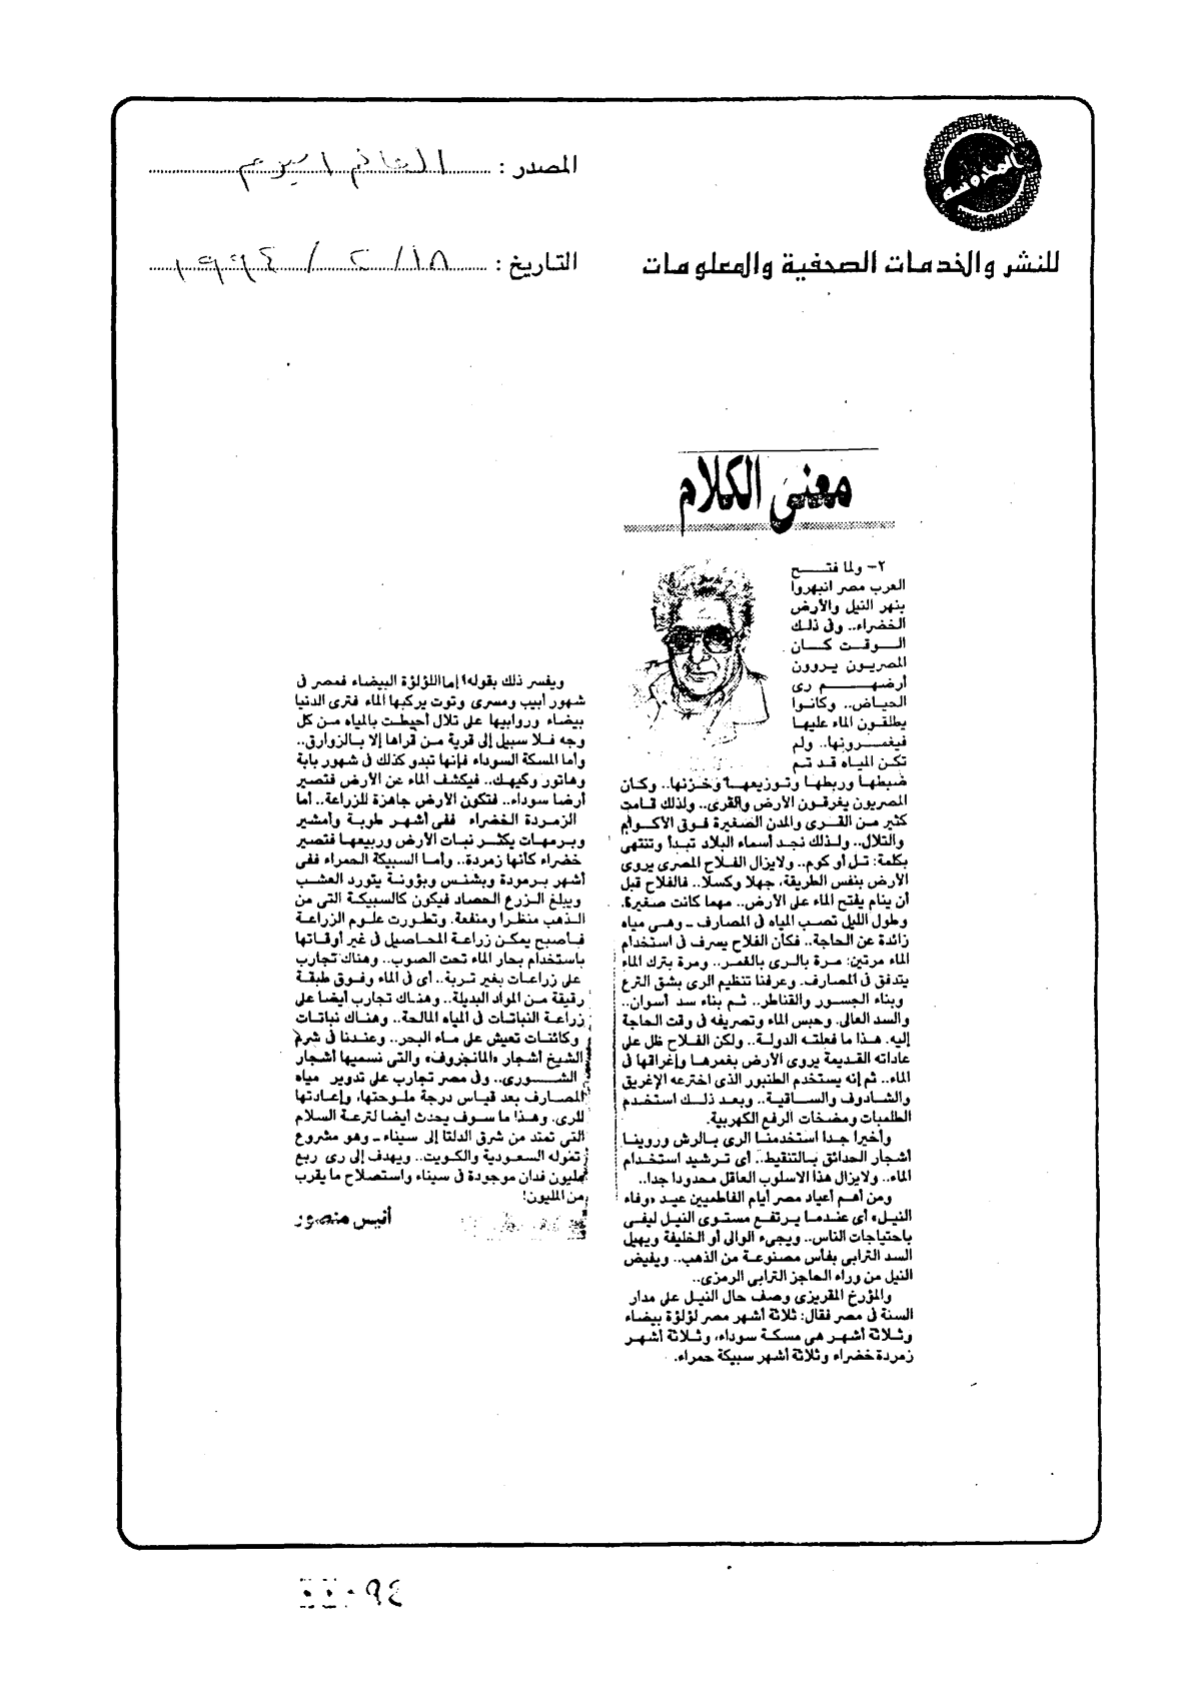 المصدر : العالم اليوم
التاريخ : ١٨ / ٢ / ١٩٩٤
للنشر والخدمات الصحفية والمعلومات
معنى الكلام
٢- ولما فتح
العرب مصر انبهروا
بنهر النيل والأرض
الخضراء.. وفى ذلك
الوقت كان
المصريون يروون
أرضهم رى
الحياض.. وكانوا
يطلقون الماء عليها
فيغمرونها.. ولم
تكن المياه قد تم
ضبطها وربطها وتوزيعها وخزنها.. وكان
المصريون يغرقون الأرض والقرى.. ولذلك قامت
كثير من القرى والمدن الصغيرة فوق الأكوام
والتلال.. ولذلك نجد أسماء البلاد تبدأ وتنتهى
بكلمة: تل أو كوم.. ولايزال الفلاح المصرى يروى
الأرض بنفس الطريقة، جهلا وكسلا.. فالفلاح قبل
أن ينام يفتح الماء على الأرض.. مهما كانت صغيرة.
وطول الليل تصب المياه فى المصارف ـ وهى مياه
زائدة عن الحاجة.. فكأن الفلاح يسرف فى استخدام
الماء مرتين: مرة بالرى بالغمر.. ومرة بترك الماء
يتدفق فى المصارف. وعرفنا تنظيم الرى بشق الترع
وبناء الجسور والقناطر.. ثم بناء سد أسوان..
والسد العالى. وحبس الماء وتصريفه فى وقت الحاجة
إليه. هذا ما فعلته الدولة.. ولكن الفلاح ظل على
عاداته القديمة يروى الأرض بغمرها وإغراقها فى
الماء.. ثم إنه يستخدم الطنبور الذى اخترعه الإغريق
والشادوف والساقية.. وبعد ذلك استخدم
الطلمبات ومضخات الرفع الكهربية.
وأخيرا جدا استخدمنا الرى بالرش وروينا
أشجار الحدائق بالتنقيط.. أى ترشيد استخدام
الماء.. ولايزال هذا الاسلوب العاقل محدودا جدا..
ومن أهم أعياد مصر أيام الفاطميين عيد «وفاء
النيل» أى عندما يرتفع مستوى النيل ليفى
باحتياجات الناس.. ويجىء الوالى أو الخليفة ويهيل
السد الترابى بفأس مصنوعة من الذهب.. ويفيض
النيل من وراء الحاجز الترابى الرمزى..
والمؤرخ المقريزى وصف حال النيل على مدار
السنة فى مصر فقال: ثلاثة أشهر مصر لؤلؤة بيضاء
وثلاثة أشهر هى مسكة سوداء، وثلاثة أشهر
زمردة خضراء وثلاثة أشهر سبيكة حمراء.
ويفسر ذلك بقوله! إما اللؤلؤة البيضاء فمصر فى
شهور أبيب ومسرى وتوت يركبها الماء فترى الدنيا
بيضاء وروابيها على تلال أحيطت بالمياه من كل
وجه فلا سبيل إلى قرية من قراها إلا بالزوارق..
وأما المسكة السوداء فإنها تبدو كذلك فى شهور بابة
وهاتور وكيهك.. فيكشف الماء عن الأرض فتصير
أرضا سوداء.. فتكون الأرض جاهزة للزراعة.. أما
الزمردة الخضراء ففى أشهر طوبة وأمشير
وبرمهات يكثر نبات الأرض وربيعها فتصير
خضراء كأنها زمردة.. وأما السبيكة الحمراء ففى
أشهر برمودة وبشنس وبؤونة يتورد العشب
ويبلغ الزرع الحصاد فيكون كالسبيكة التى من
الذهب منظرا ومنفعة. وتطورت علوم الزراعة
فأصبح يمكن زراعة المحاصيل فى غير أوقاتها
باستخدام بخار الماء تحت الصوب.. وهناك تجارب
على زراعات بغير تربة.. أى فى الماء وفوق طبقة
رقيقة من المواد البديلة.. وهناك تجارب أيضا على
زراعة النباتات فى المياه المالحة.. وهناك نباتات
وكائنات تعيش على ماء البحر.. وعندنا فى شرم
الشيخ أشجار «المانجروف» والتى نسميها أشجار
الشورى.. وفى مصر تجارب على تدوير مياه
المصارف بعد قياس درجة ملوحتها، وإعادتها
للرى. وهذا ما سوف يحدث أيضا لترعة السلام
التى تمتد من شرق الدلتا إلى سيناء ـ وهو مشروع
تموله السعودية والكويت.. ويهدف إلى رى ربع
مليون فدان موجودة فى سيناء واستصلاح ما يقرب
من المليون!
أنيس منصور